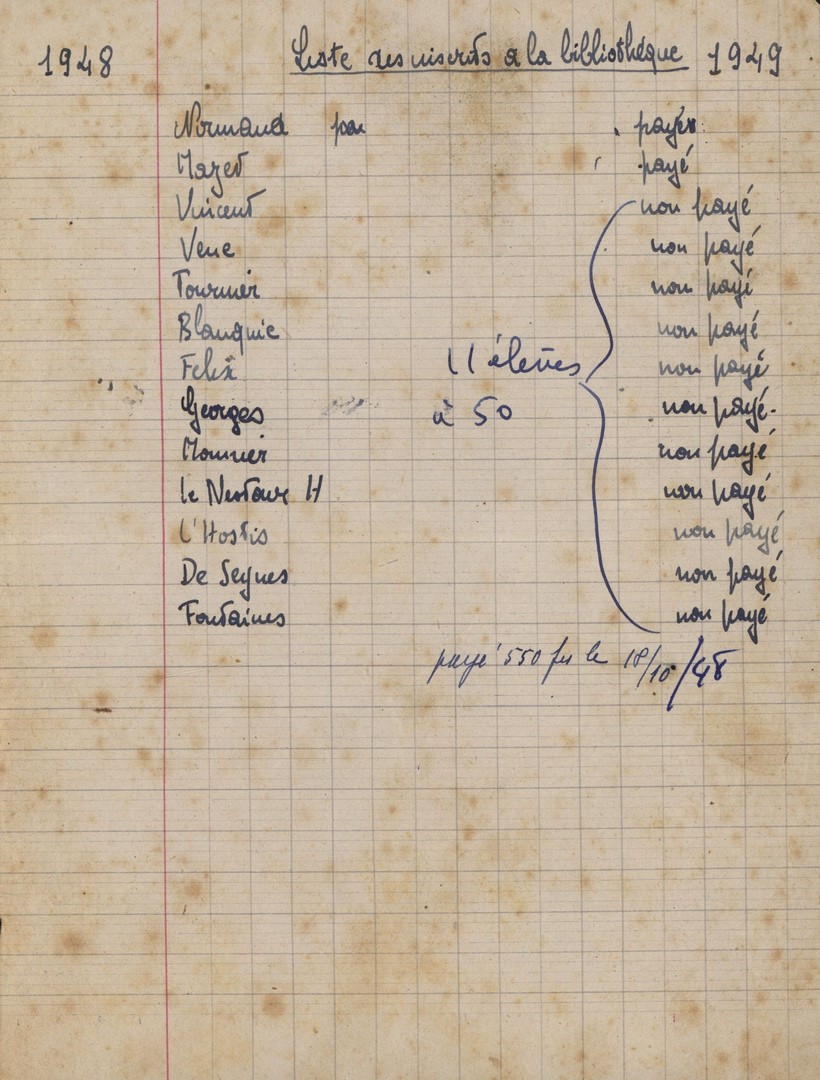 1948 Liste des inscrits a la bibliothéque 1949
Normand pa payér
Mazet payé
Vincent non payé
Vene non payé
Tournier non payé
Blanquie non payé
Felix non payé
11 élèves
Georges non payé.
à 50
Monnier non payé
le Nestour H non payé
L'Hostis non payé
De Seynes non payé
Fontaines non payé
payé 550 frs le 18/10/48